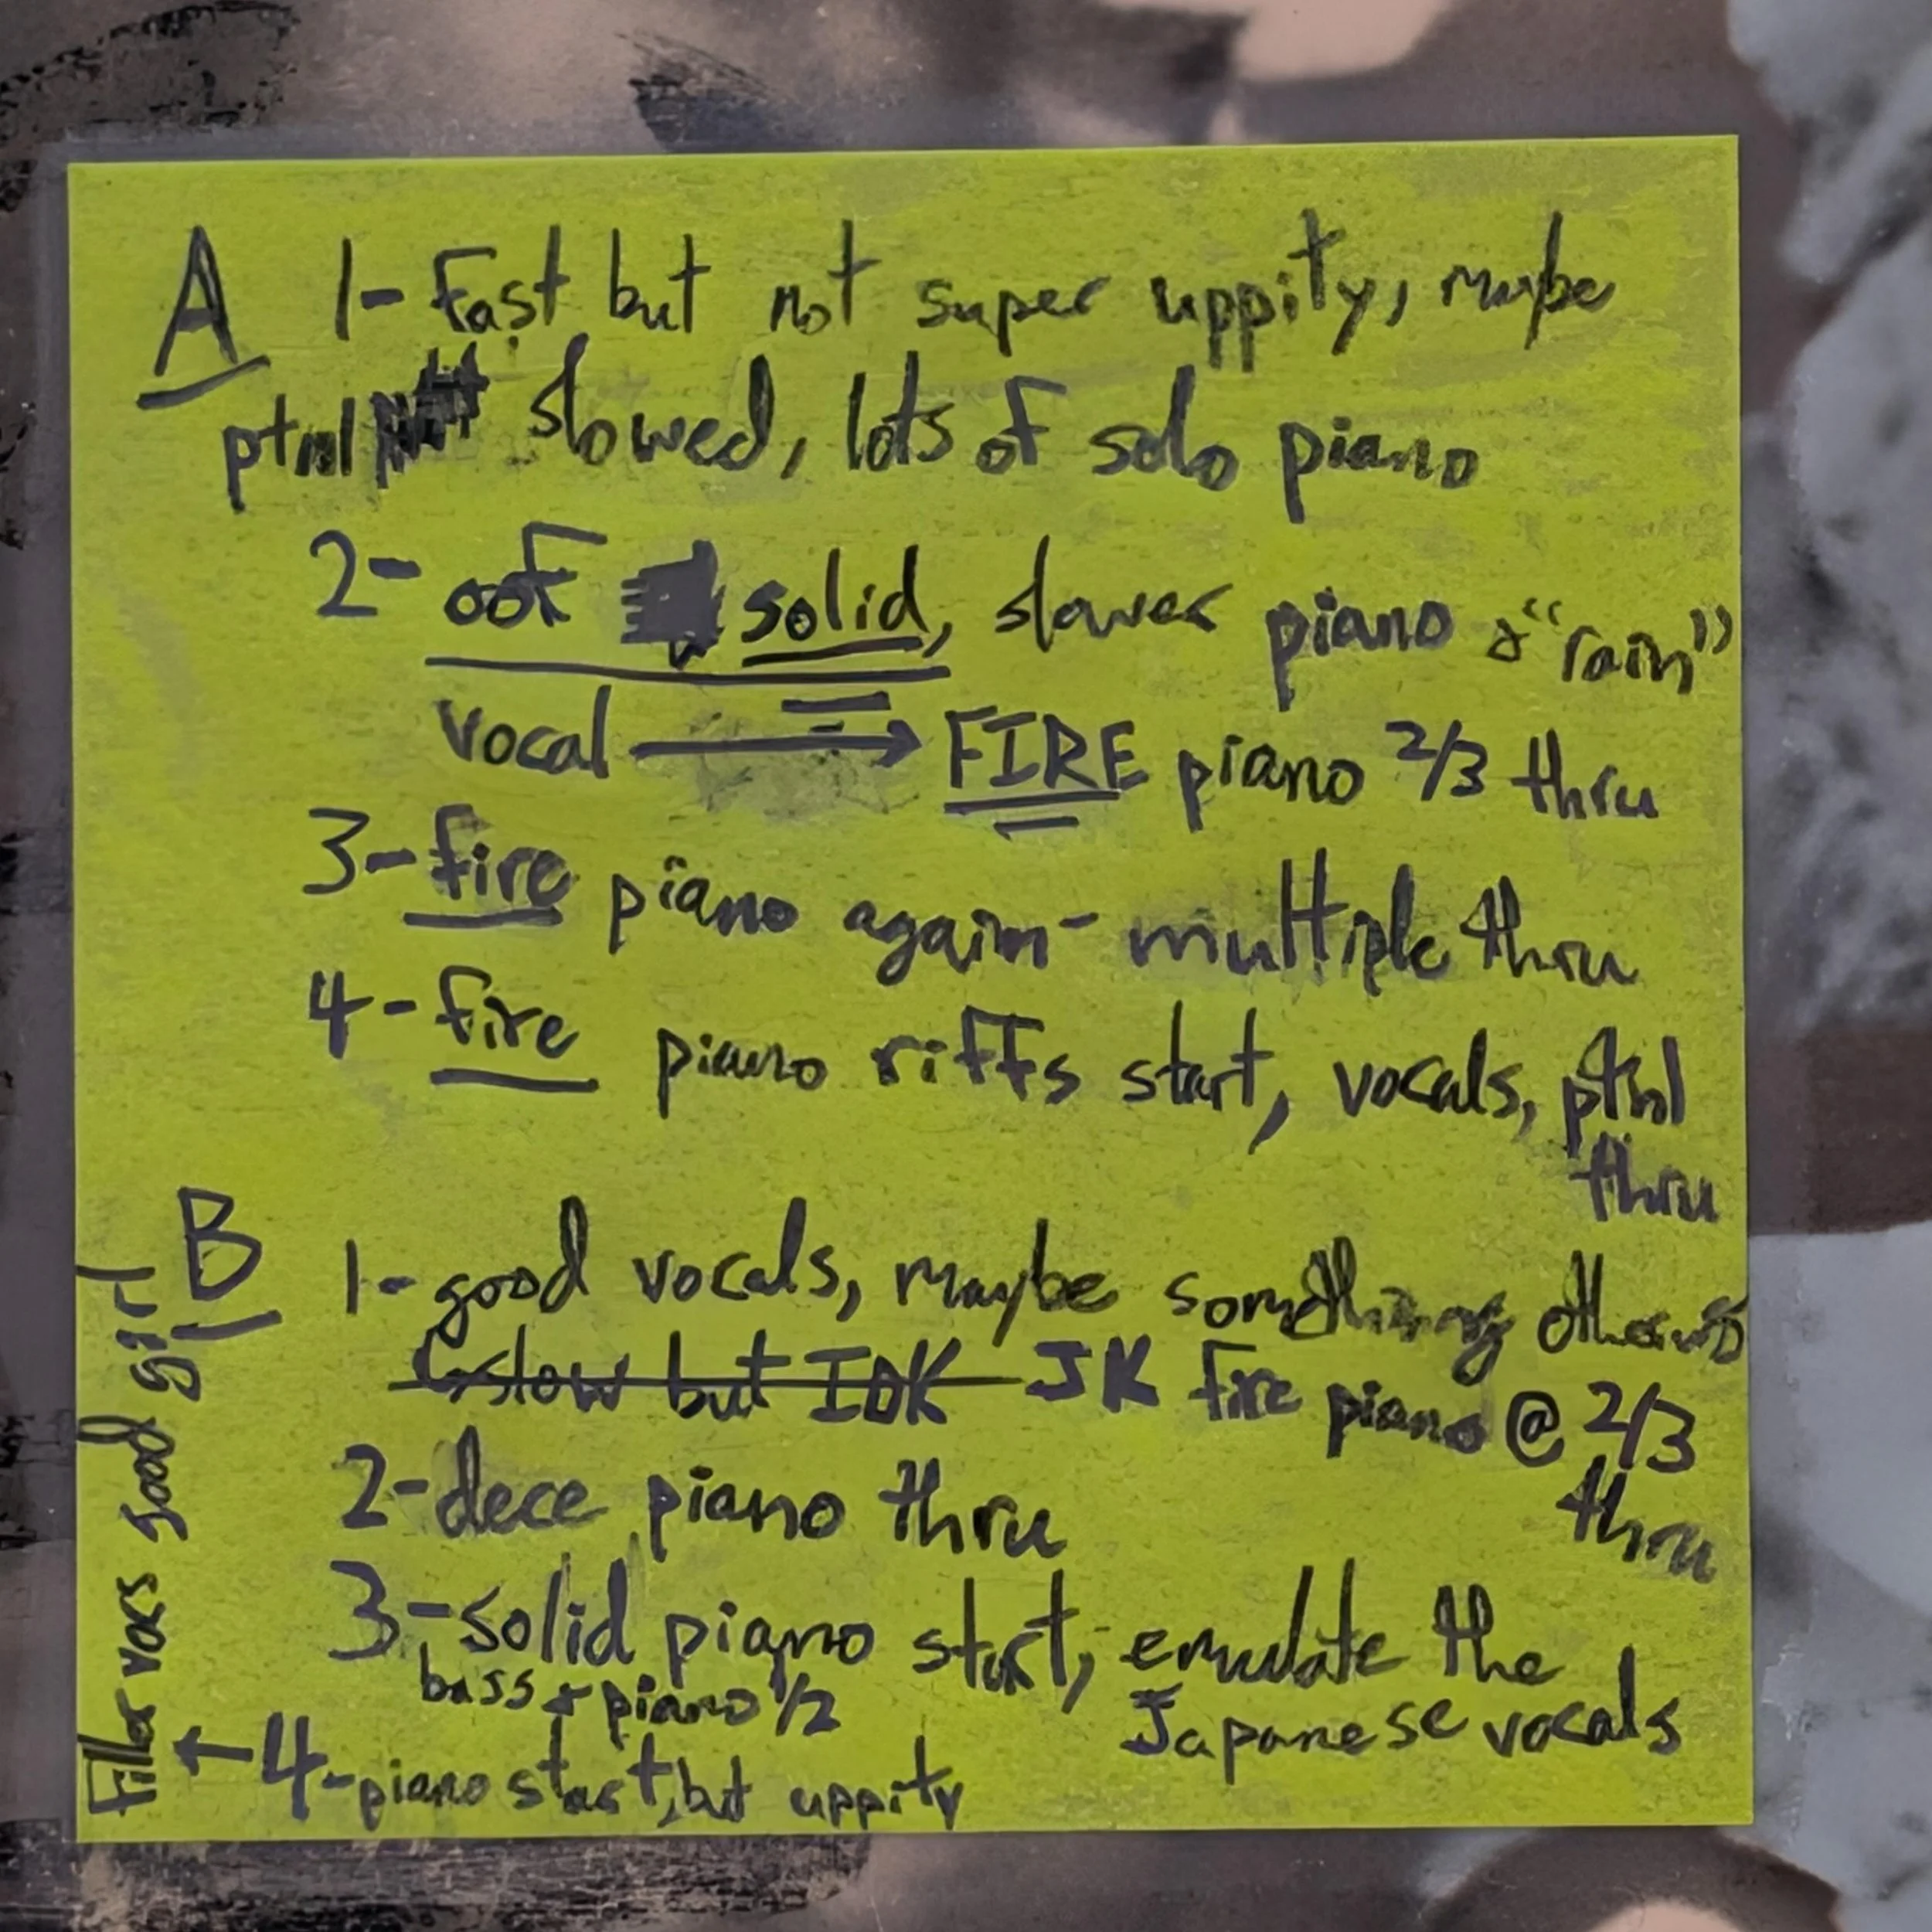 A 1- Fast but not super uppity, maybe
ptnl slowed, lots of solo piano
2- oof solid, slower piano & "rain"
vocal → FIRE piano 2/3 thru
3- fire piano again - multiple thru
4- fire piano riffs start, vocals, ptnl
thru
B 1- good vocals, maybe something
↳ slow but IDK JK fire piano @ 2/3
thru
2- dece piano thru
3- solid piano start, emulate the
Japanese vocals
bass + piano 1/2
← 4- piano start, but uppity
Filler good girl